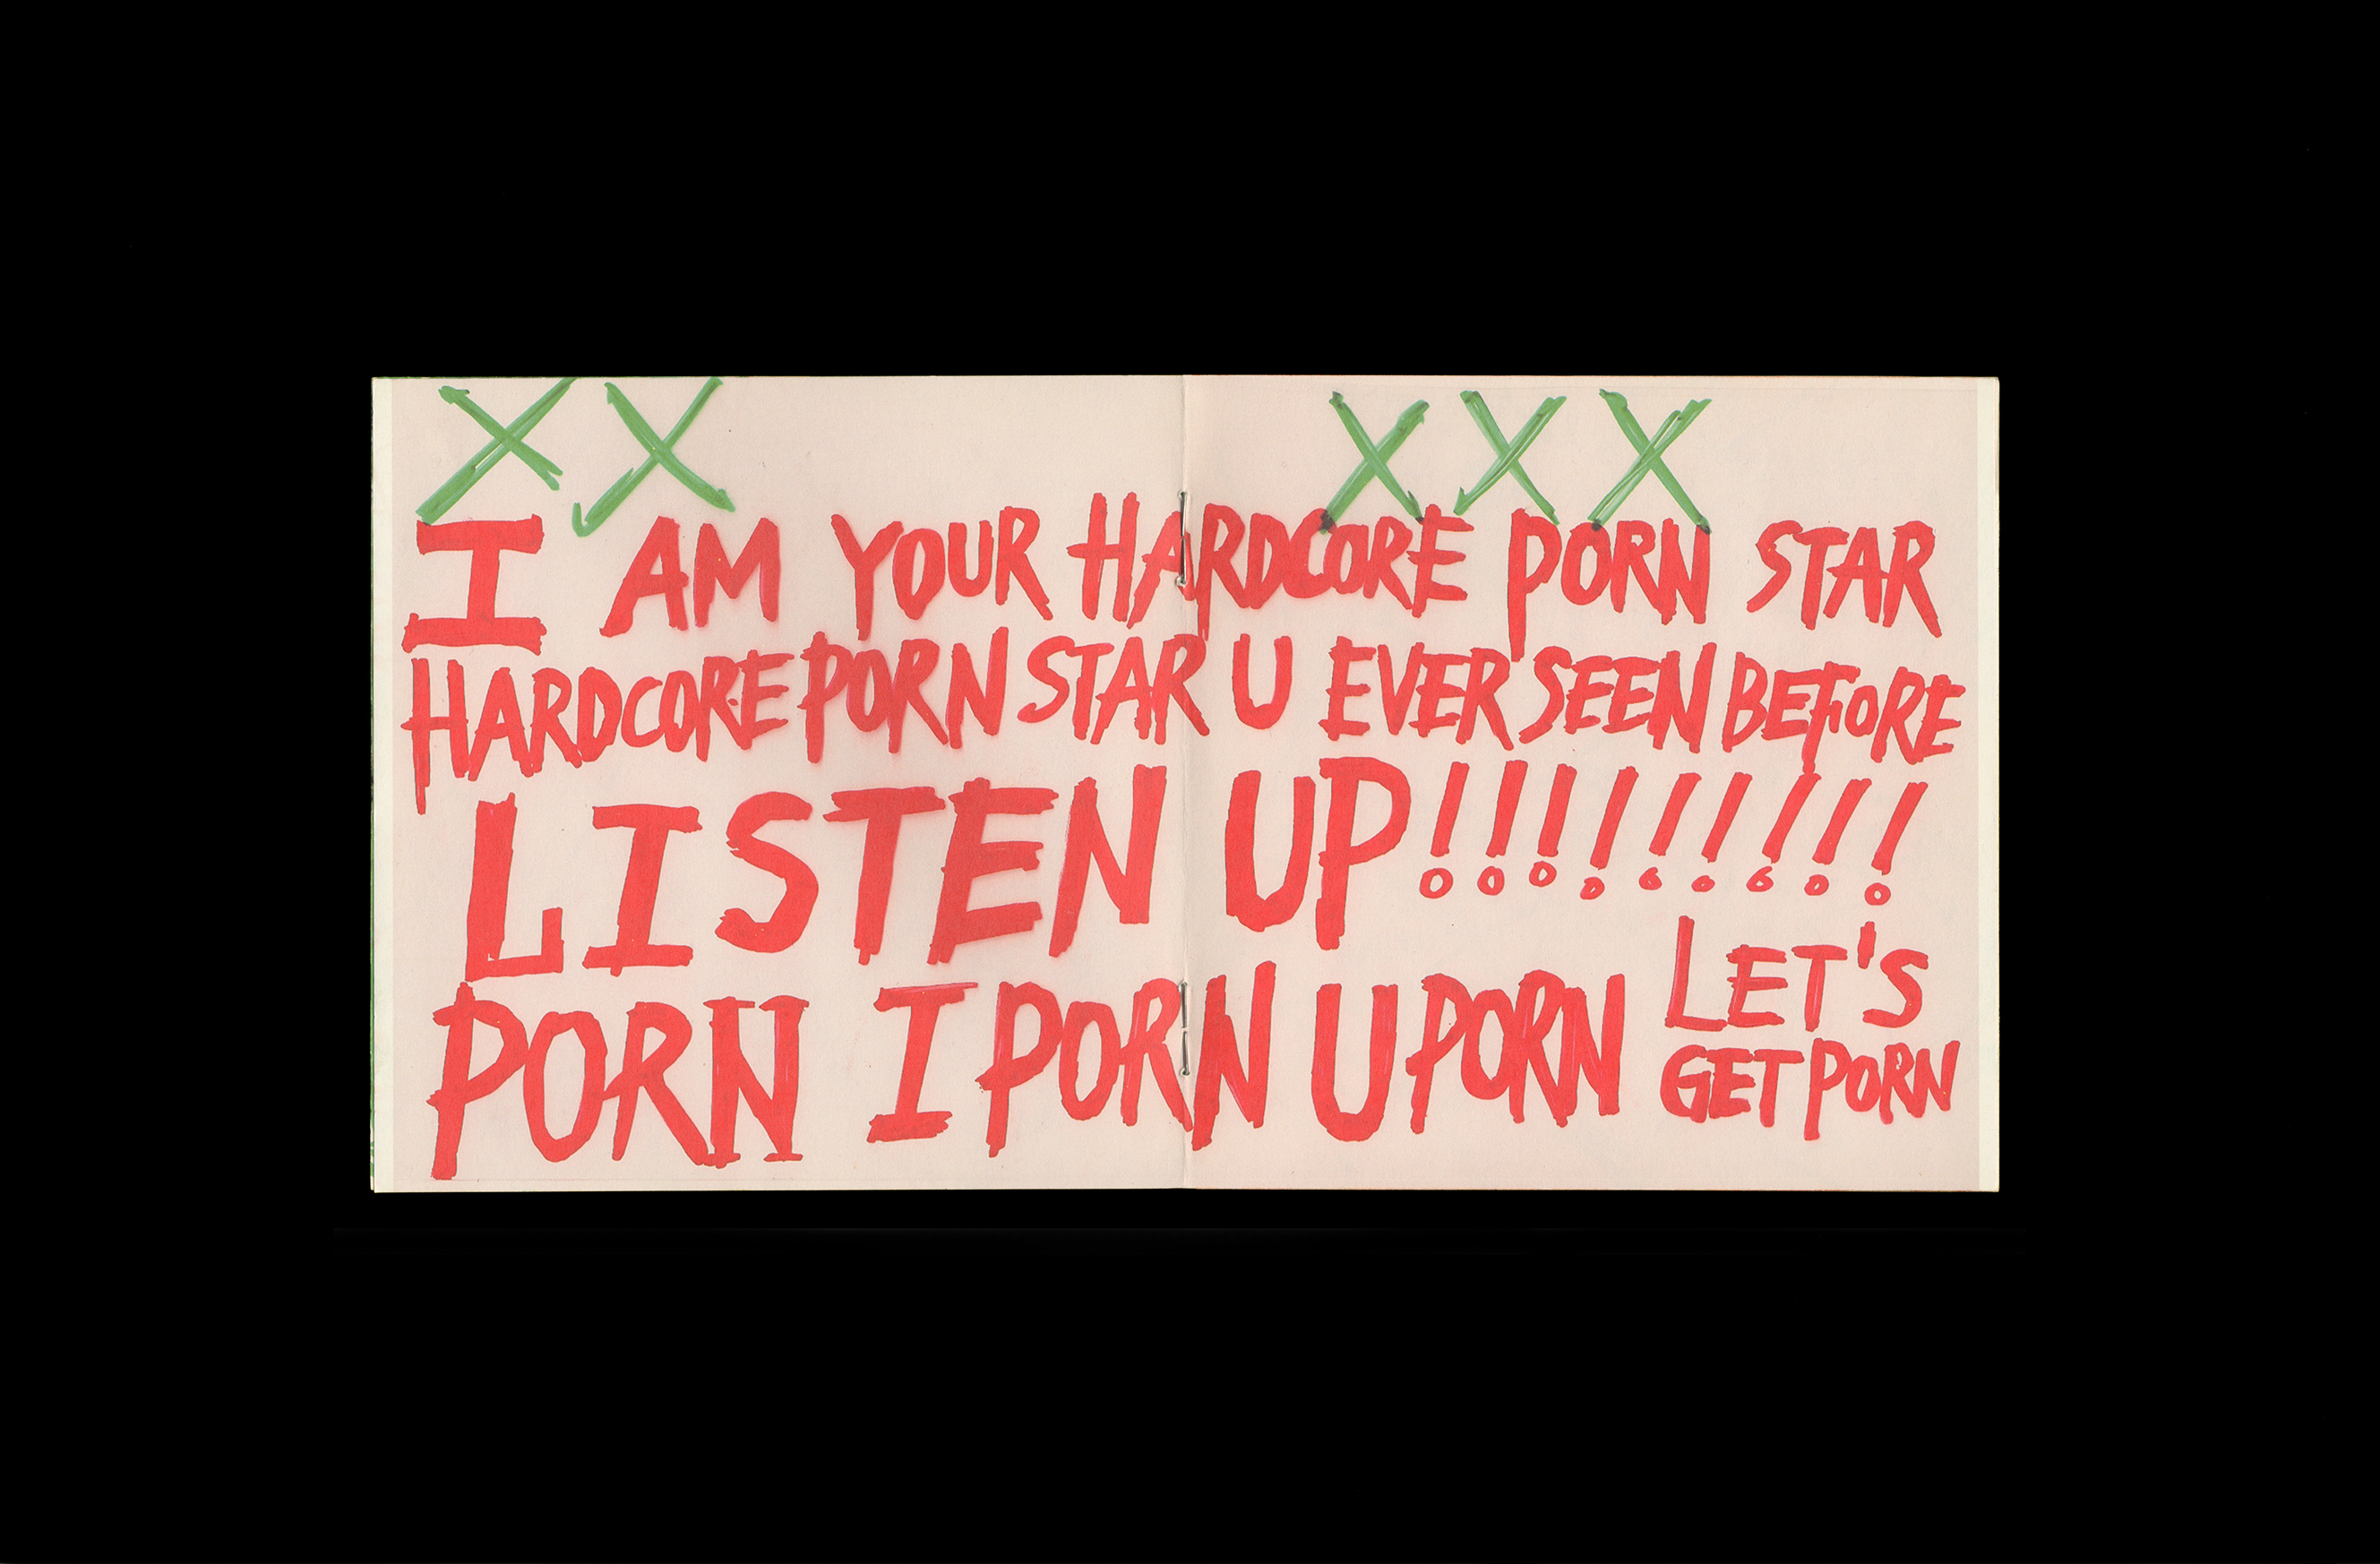 XX XXX
I AM YOUR HARDCORE PORN STAR
HARDCORE PORN STAR U EVER SEEN BEFORE
LISTEN UP!!!!!!!!!
LET'S
PORN I PORN U PORN GET PORN